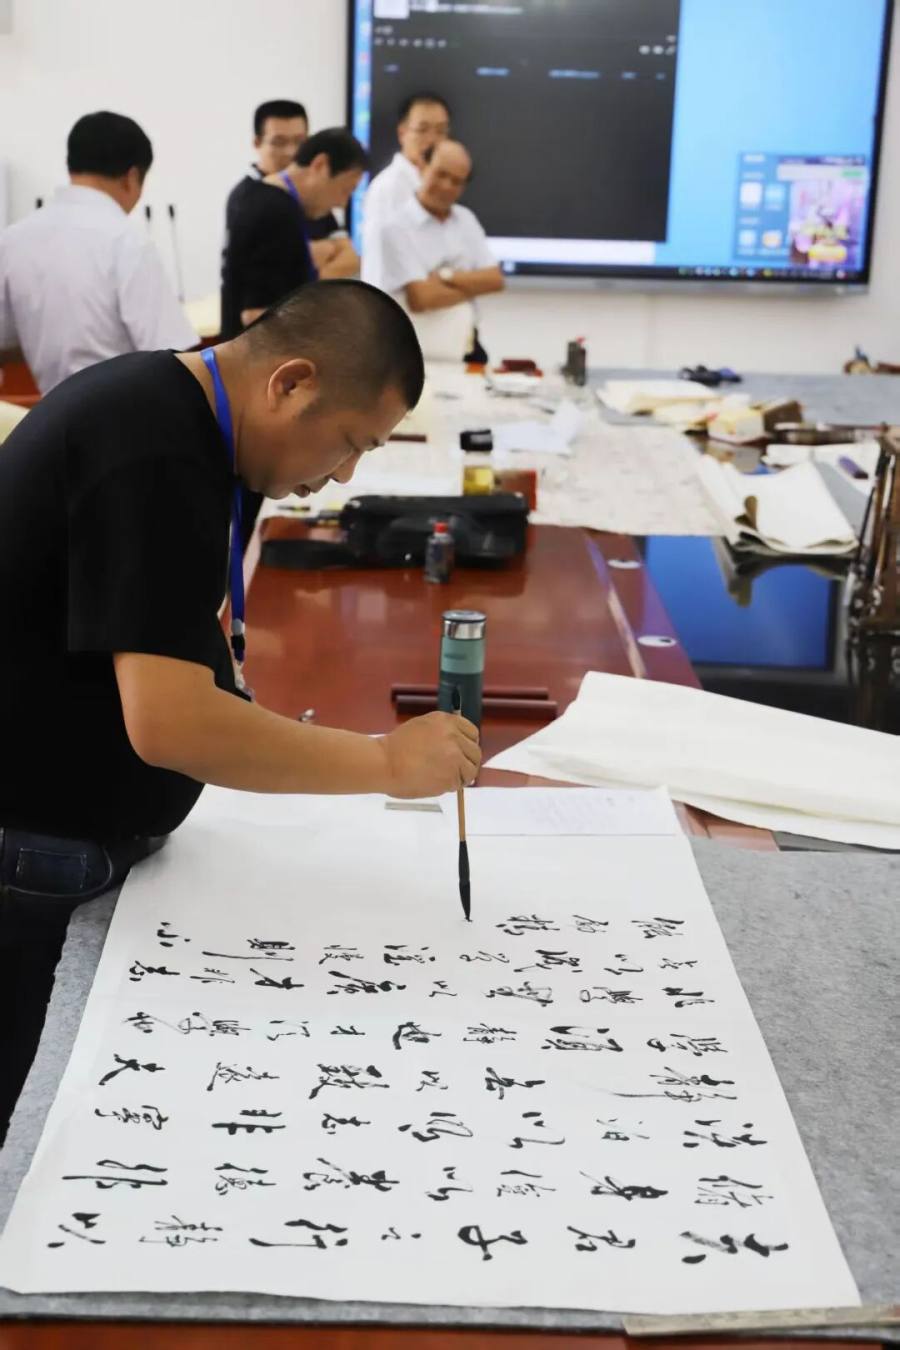 夫君子之行静以
修身俭以养德非
淡泊以明志非寧
静无以致遠夫
学须静也才须学也
非学無以廣才非志
无以成学淫慢则不
能励精